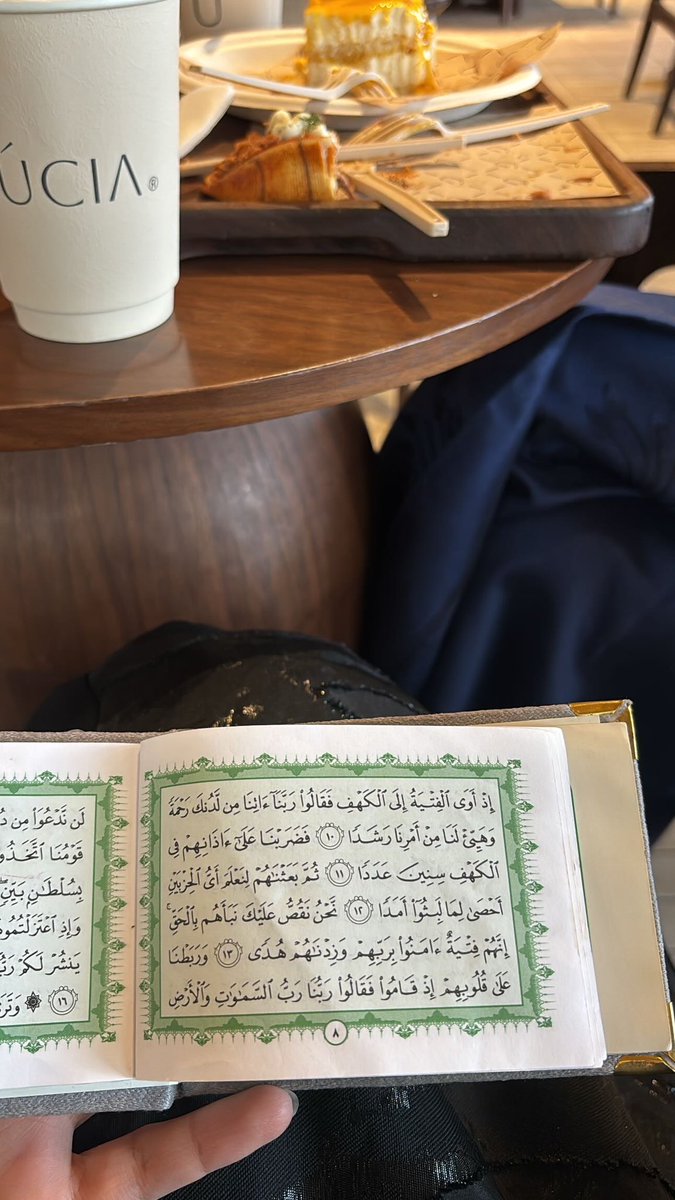 ÚCIA®
إِذْ أَوَى ٱلْفِتْيَةُ إِلَى ٱلْكَهْفِ فَقَالُوا۟ رَبَّنَآ ءَاتِنَا مِن لَّدُنكَ رَحْمَةً
وَهَيِّئْ لَنَا مِنْ أَمْرِنَا رَشَدًا ١٠ فَضَرَبْنَا عَلَىٰٓ ءَاذَانِهِمْ فِى
ٱلْكَهْفِ سِنِينَ عَدَدًا ١١ ثُمَّ بَعَثْنَٰهُمْ لِنَعْلَمَ أَىُّ ٱلْحِزْبَيْنِ
أَحْصَىٰ لِمَا لَبِثُوٓا۟ أَمَدًا ١٢ نَّحْنُ نَقُصُّ عَلَيْكَ نَبَأَهُم بِٱلْحَقِّ ۚ
إِنَّهُمْ فِتْيَةٌ ءَامَنُوا۟ بِرَبِّهِمْ وَزِدْنَٰهُمْ هُدًى ١٣ وَرَبَطْنَا
عَلَىٰ قُلُوبِهِمْ إِذْ قَامُوا۟ فَقَالُوا۟ رَبُّنَا رَبُّ ٱلسَّمَٰوَٰتِ وَٱلْأَرْضِ
٨
لَن نَّدْعُوَا۟ مِن
قَوْمُنَا ٱتَّخَذُوا۟
بِسُلْطَٰنٍۭ بَيِّنٍ ۖ
وَإِذِ ٱعْتَزَلْتُمُو
يَنشُرْ لَكُمْ
١٦ ۞